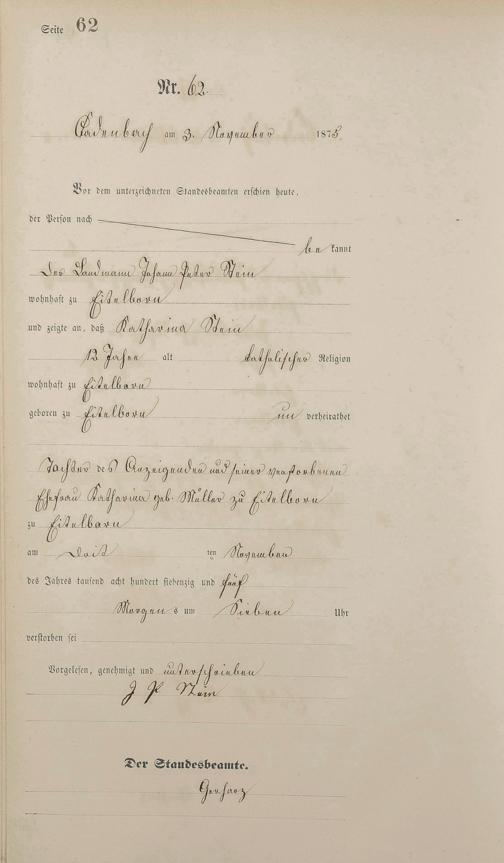 Seite 62
Nr. 62.
Cadenbach am 3. November 1875.
Vor dem unterzeichneten Standesbeamten erschien heute,
der Person nach
be kannt
der Landmann Johann Peter Stein
wohnhaft zu Eitelborn
und zeigte an, daß Katharina Stein
12 Jahre alt katholischer Religion
wohnhaft zu Eitelborn
geboren zu Eitelborn un verheirathet
Tochter des Anzeigenden und seiner verstorbenen
Ehefrau Katharina geb. Müller zu Eitelborn
zu Eitelborn
am ten November
des Jahres tausend acht hundert siebenzig und fünf
Morgen s um Sieben Uhr
verstorben sei
Vorgelesen, genehmigt und unterschrieben
J P Stein
Der Standesbeamte.
Gerharz